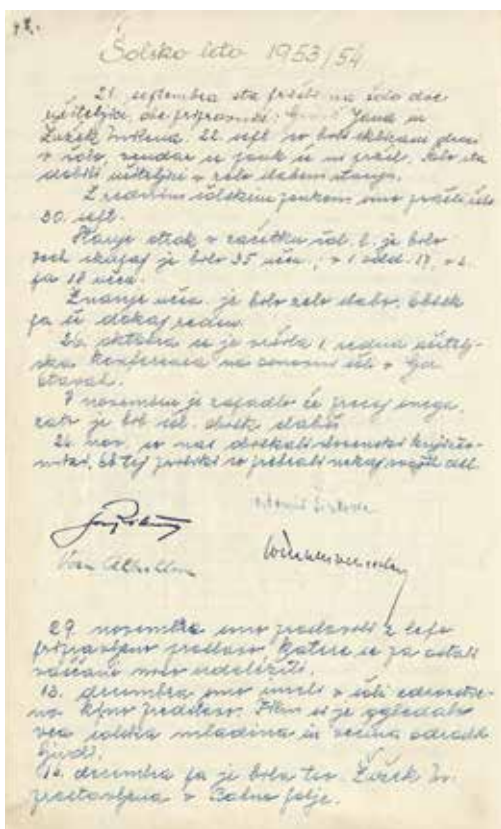 Šolsko leto 1953/54
21. septembra sta prišli na šolo dve
učiteljici, obe pripravnici: Jana in
Žužek Milena. 22. sept. so bili sklicani otroci
v šolo, vendar še pouk se ni pričel. Šolo sta
dobili učiteljici v zelo slabem stanju.
Z rednim šolskim poukom smo pričeli šele
30. sept.
Stanje otrok v začetku šol. l. je bilo
vseh skupaj je bilo 35 učen., v 1. odd. 17, v 2.
pa 18 učen.
Znanje učen. je bilo zelo slabo, obisk
pa še dokaj reden.
26. oktobra se je vršila 1. redna učitelj-
ska konferenca na osnovni šoli v
9 novembra je zapadlo že precej snega,
zato je bil šol. obisk slabši
26. nov. so nas obiskali slovenski književ-
niki. Ob tej priliki so prebrali nekaj svojih del.
29. novembra smo proslavili z lepo
pripravljeno proslavo, katere so se ostali
vaščani niso udeležili.
13. decembra smo imeli v šoli zdravstve-
no kino predstavo. Film si je ogledala
vsa šolska mladina in večina odraslih
ljudi.
16. decembra pa je bila tov. Žužek
prestavljena v Babno polje.